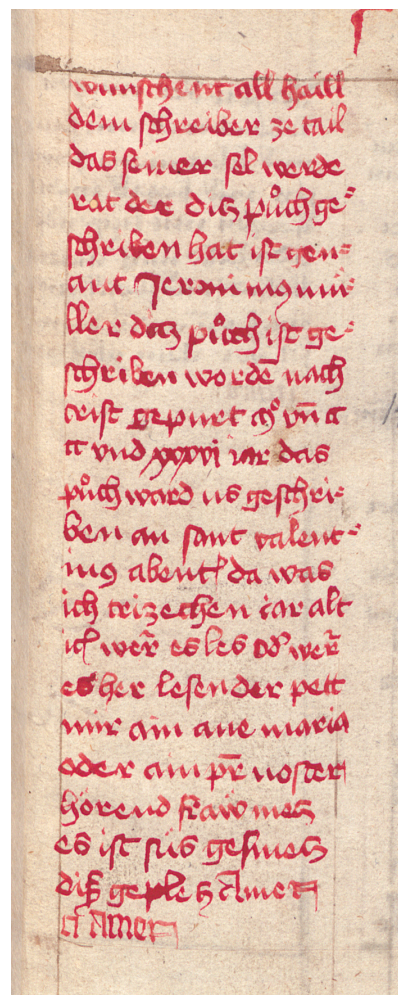 wunschent all haill
dem schreiber ze tail
das seiner sel werde
rat der ditz půch ge⸗
schriben hat ist gen⸗
ant Jeronimꝰ mü⸗
ller ditz půch ist ge⸗
schriben wordē nach
crist gepurt vn̄ cc
cc vnd xxxvi iar das
půch ward us geschri⸗
ben an sant valent⸗
inꝰ abent da was
ich trizechen iar alt
ich wer̄ es les od̕ wer̄
es her lesen der pett
mir ain aue maria
oder ain pr̄ noster
hörend
es ist süs
Amen
Amen